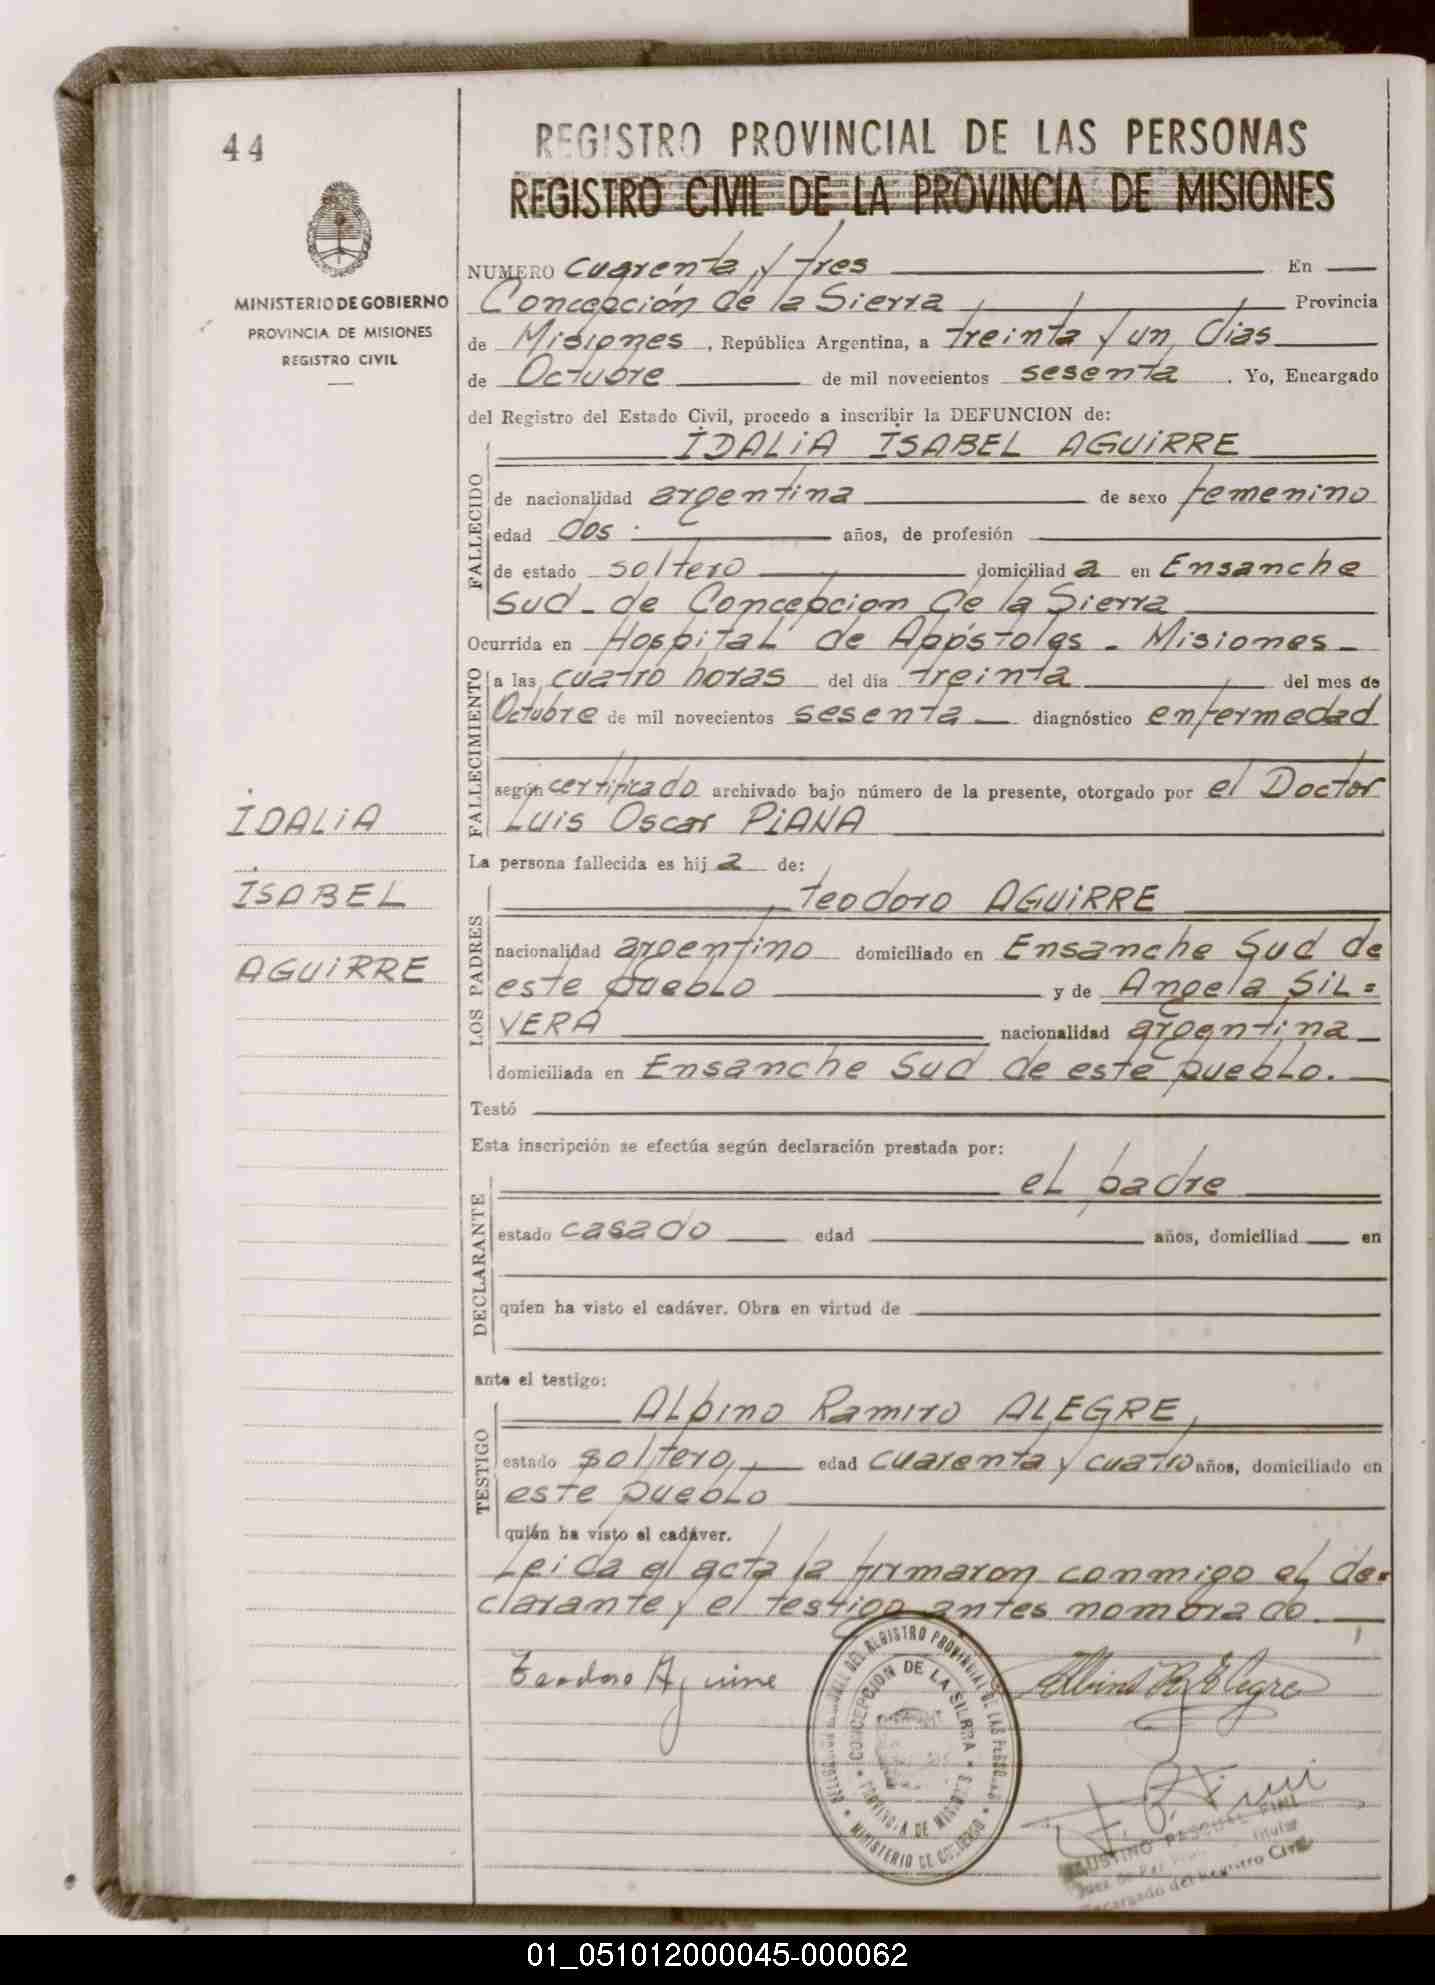 44
REGISTRO PROVINCIAL DE LAS PERSONAS
REGISTRO CIVIL DE LA PROVINCIA DE MISIONES
MINISTERIO DE GOBIERNO
PROVINCIA DE MISIONES
REGISTRO CIVIL
NUMERO Cuarenta y tres En
Concepción de la Sierra Provincia
de Misiones, República Argentina, a treinta y un dias
de Octubre de mil novecientos sesenta. Yo, Encargado
del Registro del Estado Civil, procedo a inscribir la DEFUNCION de:
IDALIA ISABEL AGUIRRE
FALLECIDO
de nacionalidad argentina de sexo femenino
edad dos años, de profesión
de estado soltero domiciliada en Ensanche
Sud - de Concepcion de la Sierra
Ocurrida en Hospital de Apóstoles - Misiones -
FALLECIMIENTO
a las cuatro horas del día treinta del mes de
Octubre de mil novecientos sesenta diagnóstico enfermedad
según certificado archivado bajo número de la presente, otorgado por el Doctor
Luis Oscar PIANA
IDALIA
ISABEL
AGUIRRE
La persona fallecida es hija de:
LOS PADRES
Teodoro AGUIRRE
nacionalidad argentino domiciliado en Ensanche Sud de
este pueblo y de Angela SIL=
VERA nacionalidad argentina
domiciliada en Ensanche Sud de este pueblo.
Testó
Esta inscripción se efectúa según declaración prestada por:
DECLARANTE
el padre
estado casado edad años, domiciliad en
quien ha visto el cadáver. Obra en virtud de
ante el testigo:
TESTIGO
Albino Ramiro ALEGRE,
estado soltero, edad cuarenta y cuatro años, domiciliado en
este pueblo
quién ha visto el cadáver.
Leida el acta la firmaron conmigo el de=
clarante y el testigo antes nombrado.
Teodoro Aguirre
Albino R. Alegre
DEL REGISTRO PROVINCIAL DE LAS PERSONAS
CONCEPCION DE LA SIERRA
PROVINCIA DE MISIONES
MINISTERIO DE GOBIERNO
F. P. Fini
FAUSTINO PASCUAL FINI
Juez de Paz Titular
Encargado del Registro Civil
01_051012000045-000062